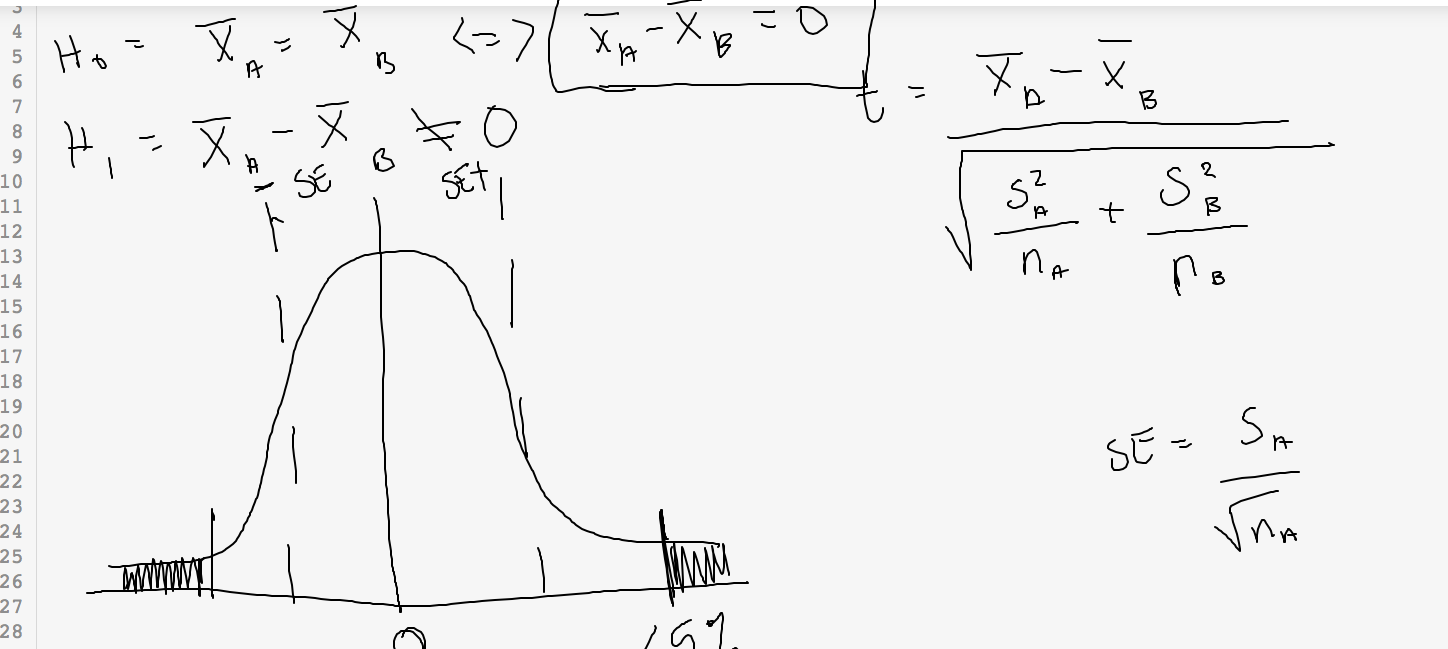 3
4
5
6
7
8
9
10
11
12
13
14
15
16
17
18
19
20
21
22
23
24
25
26
27
28
H₀ = X̄_A = X̄_B <=> X̄_A - X̄_B = 0
H₁ = X̄_A - X̄_B ≠ 0
t = (X̄_A - X̄_B) / √(S²_A / n_A + S²_B / n_B)
- SE
SE+
SE = S_A / √n_A
0
5%